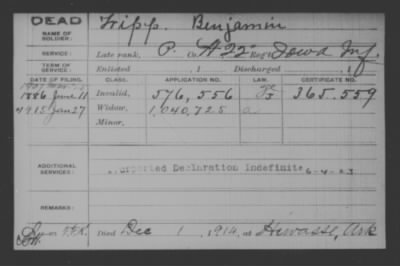 DEAD
NAME OF SOLDIER: Tripp, Benjamin
SERVICE: Late rank, P. Co. H 22" Reg't Iowa Inf.
TERM OF SERVICE: Enlisted , 1 Discharged , 1
DATE OF FILING. CLASS. APPLICATION NO. LAW. CERTIFICATE NO.
1886 June 11 Invalid, 576,556 365.559
1915 Jan 27 Widow, 1,040,725 a
Minor,
ADDITIONAL SERVICES: Declaration Indefinite 6-4-23
REMARKS:
Died Dec 1, 1914, at Hiwasse, Ark